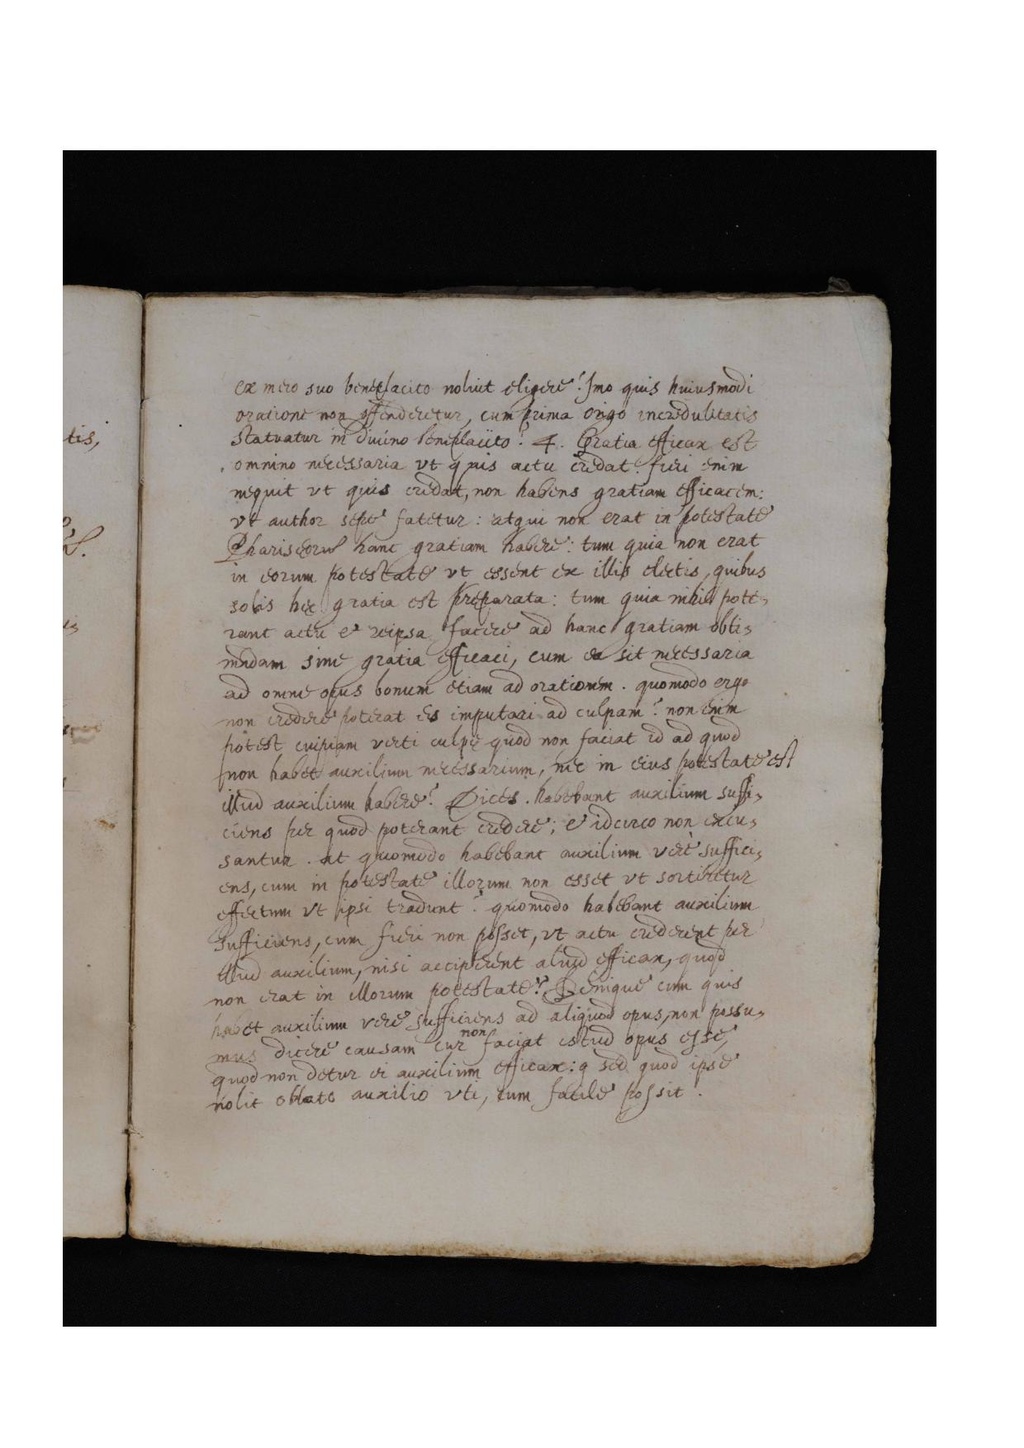 tis,
ex mero suo beneplacito noluit eligere? Imo quis huiusmodi
oratione non offenderetur, cum prima origo incredulitatis
statuatur in diuino beneplacito? 4. Gratia efficax est
omnino necessaria vt quis actu credat. fieri enim
nequit vt quis credat, non habens gratiam efficacem:
vt author sepe fatetur: atqui non erat in potestate
Phariseorum hanc gratiam habere: tum quia non erat
in eorum potestate vt essent ex illis electis, quibus
solis hec gratia est preparata: tum quia nihil pote,
rant actu et reipsa facere ad hanc gratiam obti,
nendam sine gratia efficaci, cum ea sit necessaria
ad omne opus bonum etiam ad orationem. quomodo ergo
non credere poterat eis imputari ad culpam? non enim
potest cuipiam verti culpe quod non faciat id ad quod
non habet auxilium necessarium, nec in eius potestate est
illud auxilium habere? Dices. habebant auxilium suffi,
ciens per quod poterant credere; et idcirco non excu,
santur. at quomodo habebant auxilium verè suffici,
ens, cum in potestate illorum non esset vt sortiretur
effectum vt ipsi tradunt? quomodo habebant auxilium
sufficiens, cum fieri non posset, vt actu crederent per
illud auxilium, nisi acciperent aliud efficax, quod
non erat in illorum potestate? Denique cum quis
habet auxilium vere sufficiens ad aliquod opus, non possu,
mus dicere causam cur non faciat istud opus esse,
quod non detur ei auxilium efficax: sed quod ipse
nolit oblato auxilio vti, cum facile possit.